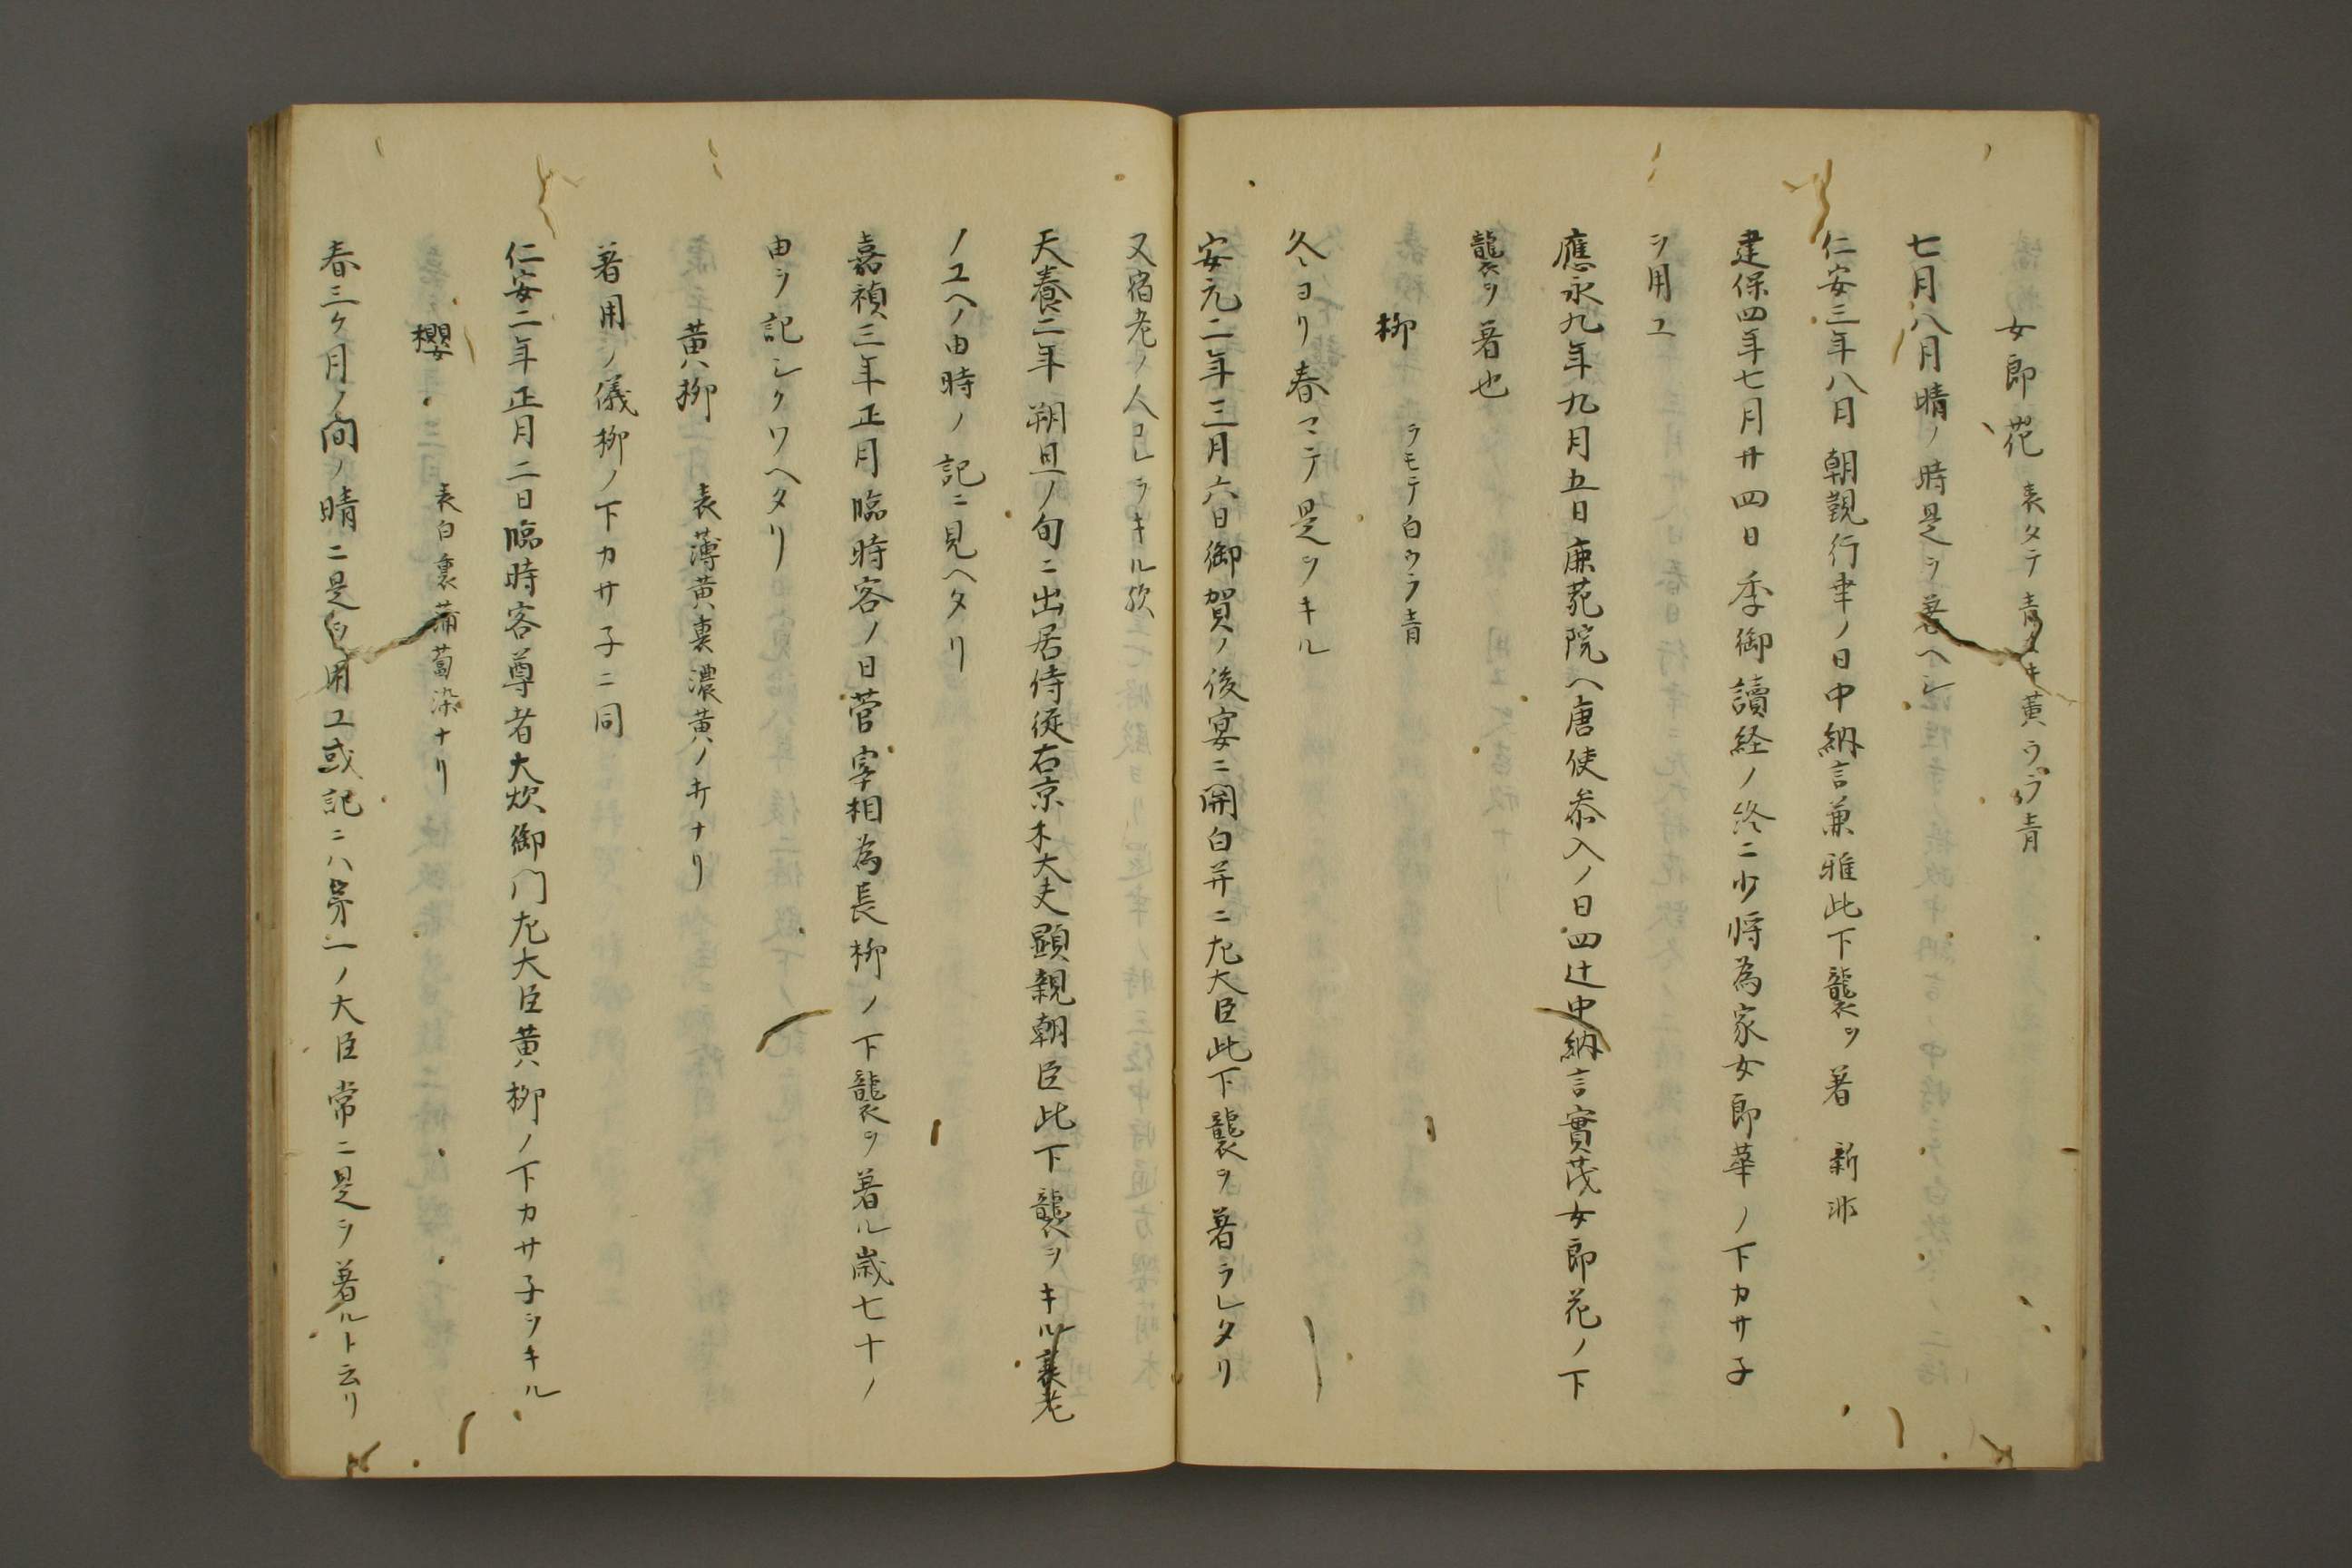 女郎花 表タテ青ヌキ黄ウラ青
七月八月晴ノ時是ヲ着ヘシ
仁安三年八月朝覲行幸ノ日中納言兼雅此下襲ヲ著
建保四年七月廿四日季御讀経ノ終ニ少将為家女郎華ノ下カサ子
ヲ用ユ
應永九年九月五日鹿苑院ヘ唐使参入ノ日四辻中納言實茂女郎花ノ下
襲ヲ著也
柳 ヲモテ白ウラ青
冬ヨリ春マテ是ヲキル
安元二年三月六日御賀ノ後宴ニ関白并ニ左大臣此下襲ヲ著ラレタリ
又宿老ノ人コレヲキル歟
天養二年朔旦ノ旬ニ出居侍従右京木大夫顕親朝臣此下襲ヲキル衰老
ノユヘノ由時ノ記ニ見ヘタリ
嘉禎三年正月臨時客ノ日菅宰相為長柳ノ下襲ヲ著ル歳七十ノ
由ヲ記シクワヘタリ
黄柳 表薄黄裏濃黄ノキナリ
著用ノ儀柳ノ下カサ子ニ同
仁安二年正月二日臨時客尊者大炊御門左大臣黄柳ノ下カサ子ヲキル
櫻 表白裏蒲萄染ナリ
春三ケ月ノ間ノ晴ニ是ヲ用ユ或記ニハ第一ノ大臣常ニ是ヲ著ルト云リ